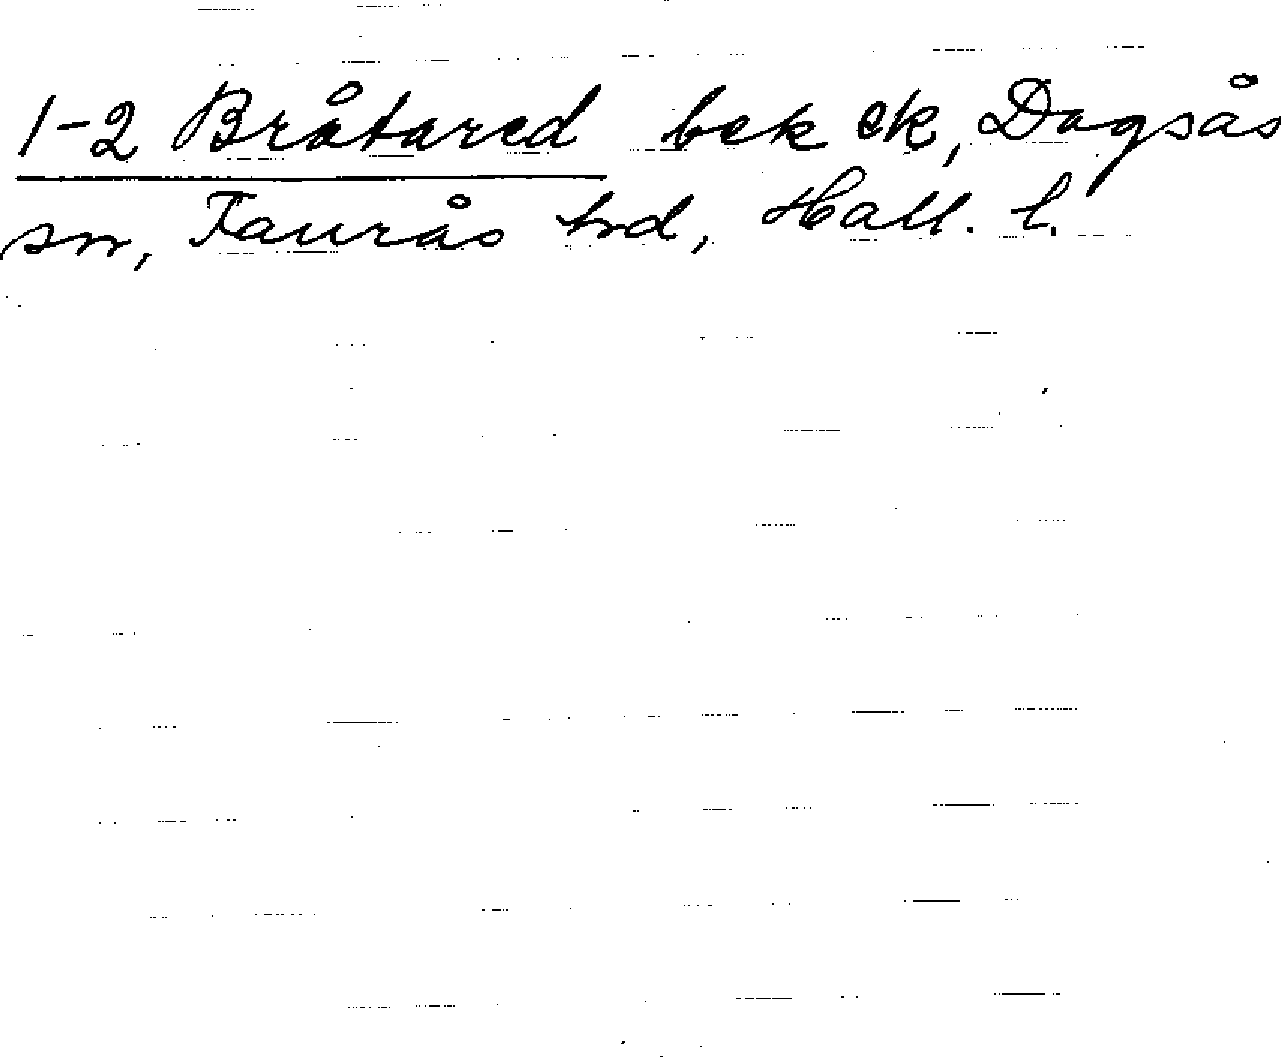 1-2 Bråtared bek ek, Dagsås
sn, Faurås hd, Hall. l.